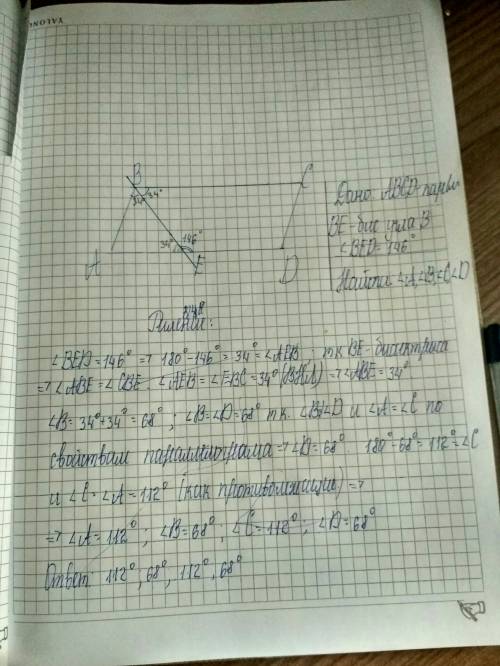 YALONG
B
C
34°
34°
146°
34°
A
E
D
Дано: ABCD-парал
BE-бис угла B
∠BED=146°
Найти: ∠A,∠B,∠C∠D
Решение:
∠BED=146° => 180°-146°=34°=∠AEB; т.к BE-биссектриса
=> ∠ABE=∠CBE ∠AEB=∠EBC=34° (ВНЛ) => ∠ABE=34°
∠B=34°+34°=68°; ∠B=∠D=68° т.к. ∠B=∠D и ∠A=∠C по
свойствам параллелограма => ∠D=68° 180°-68°=112°=∠C
и ∠C=∠A=112° (как противолежащие) =>
=> ∠A=112°; ∠B=68°, ∠C=112°; ∠D=68°
Ответ: 112°, 68°, 112°, 68°